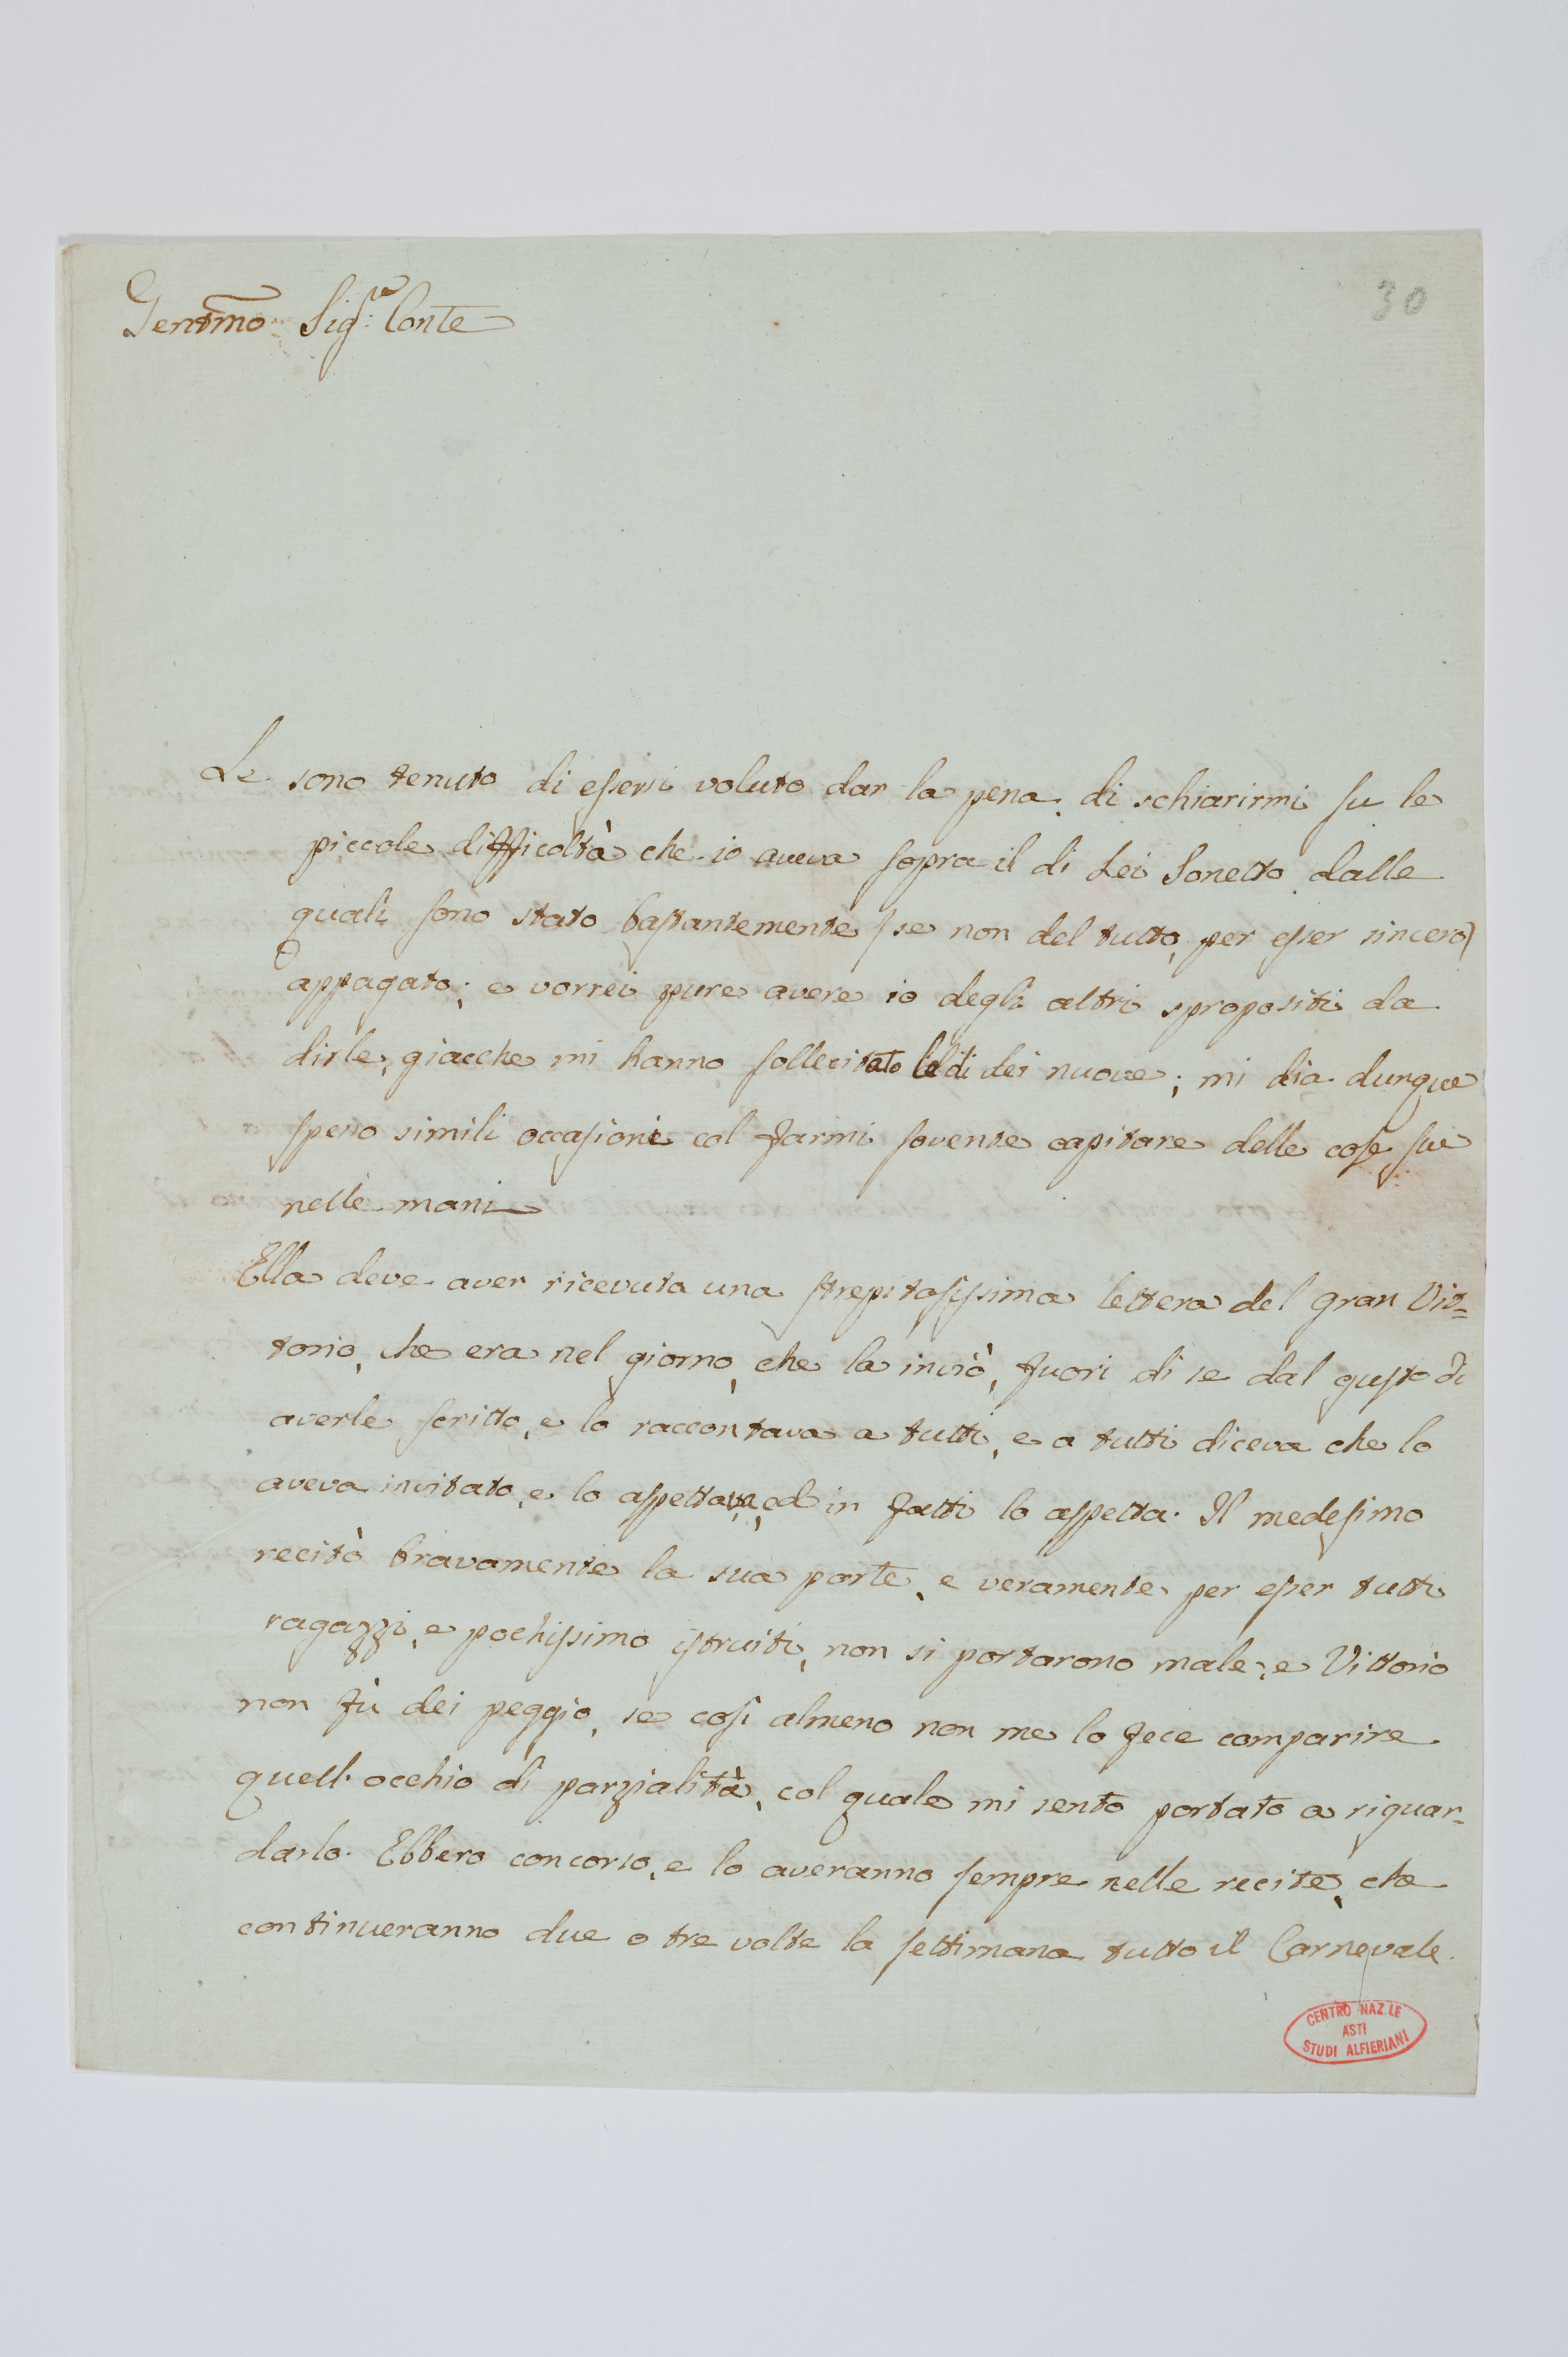 Gentmo Sigre: Conte
30
Le sono tenuto di essersi voluto dar la pena di schiarirmi su le
piccole difficoltà che io aveva sopra il di Lei Sonetto dalle
quali sono stato bastantemente (se non del tutto, per esser sincero)
appagato; e vorrei pure avere io degli altri spropositi da
dirle, giacche mi hanno sollecitato le di Lei nuove; mi dia dunque
spesso simili occasioni col farmi sovente capitare delle cose sue
nelle mani
Ella deve aver ricevuta una strepitosissima lettera del gran Vit=
torio, che era nel giorno, che la inviò, fuori di se dal gusto di
averle scritto, e lo raccontava a tutti, e a tutti diceva che lo
aveva invitato, e lo aspettava, ed in fatti lo aspetta. Il medesimo
recitò bravamente la sua parte, e veramente per esser tutti
ragazzi, e pochissimo istruiti, non si portarono male, e Vittorio
non fù dei peggio, se così almeno non me lo fece comparire
quell'occhio di parzialità, col quale mi sento portato a riguar=
darlo. Ebbero concorso, e lo averanno sempre nelle recite, che
continueranno due o tre volte la settimana tutto il Carnevale.
CENTRO NAZ.LE
ASTI
STUDI ALFIERIANI